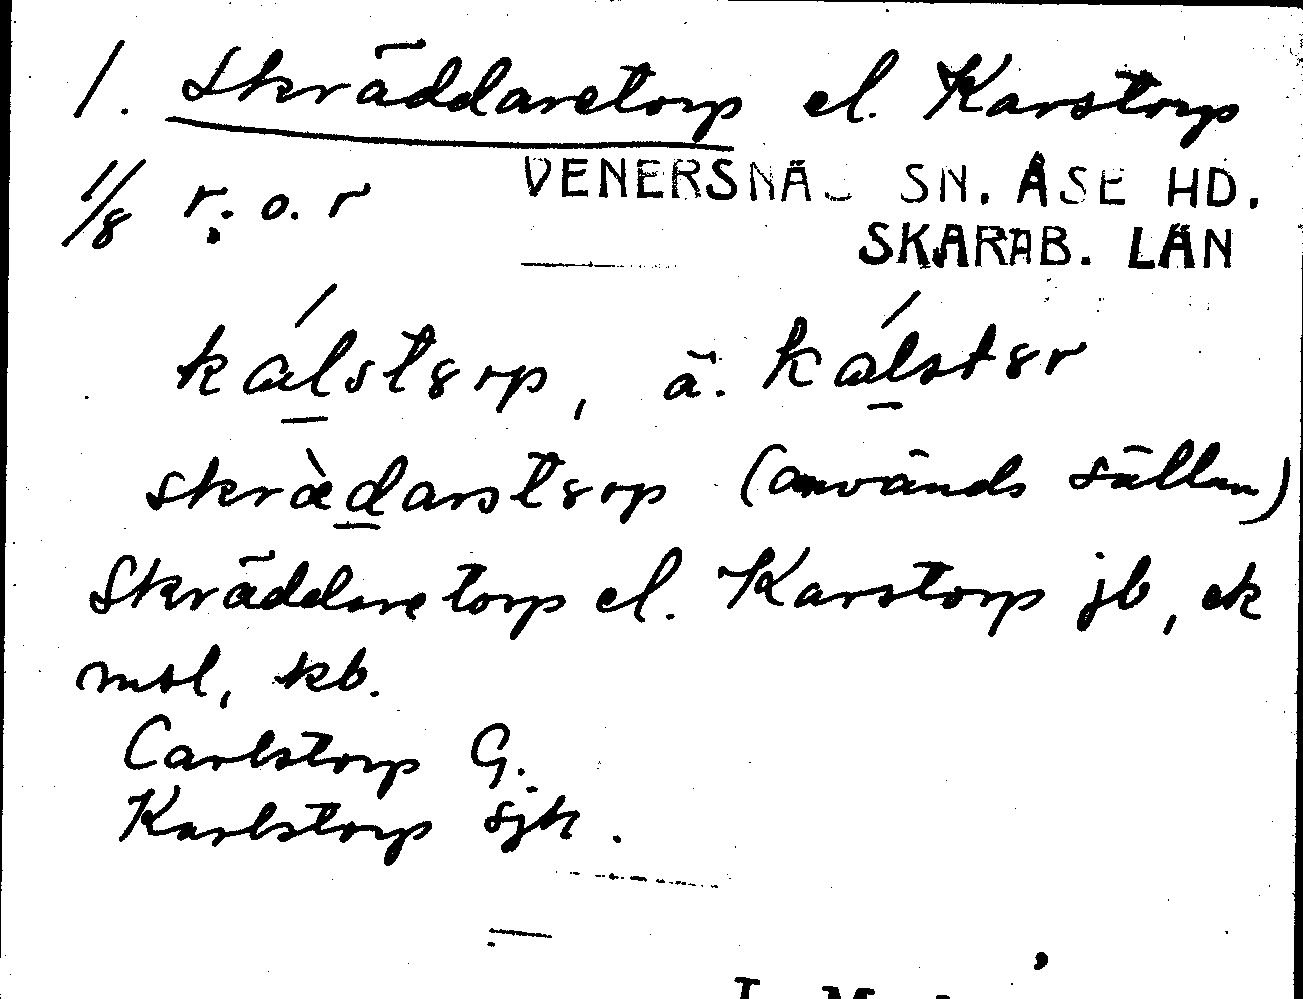 1. Skräddaretorp el. Karstorp
1/8 r. o. r VENERSNÄS SN. ÅSE HD.
SKARAB. LÄN
kálstɤrp, ä. kálstɤr
skræ̀darstɤrp (används sällan)
Skräddaretorp el. Karstorp jb, ek
msl, kb.
Carlstorp G.
Karlstorp sjk.